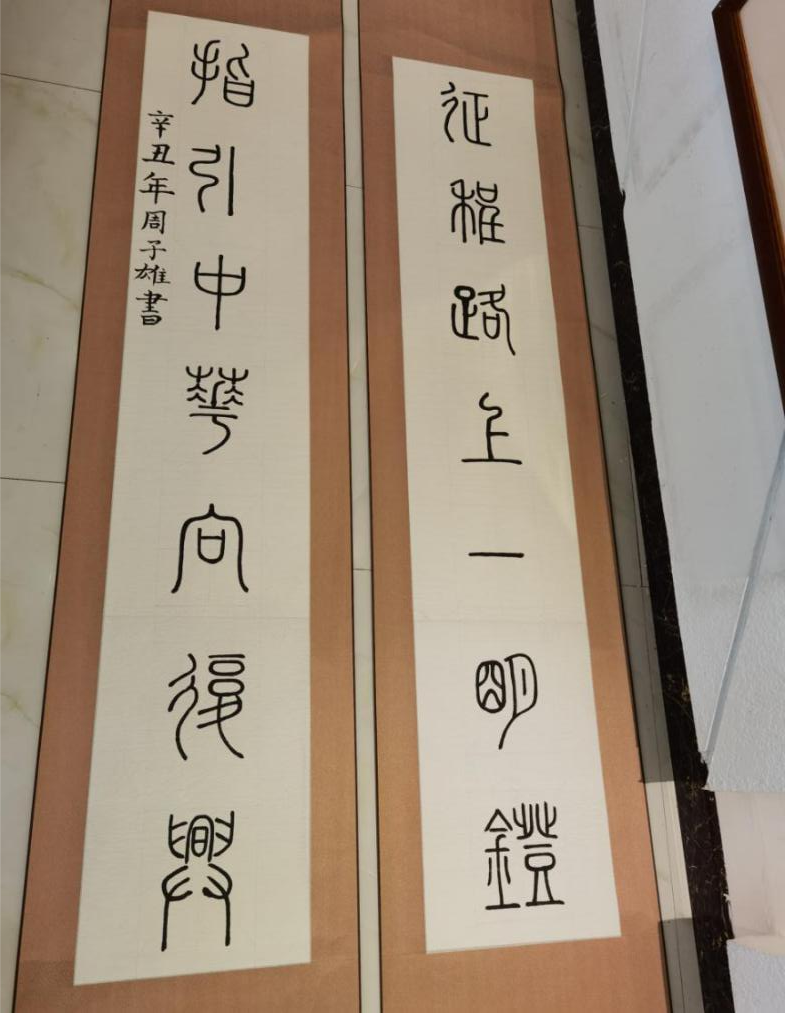 征程路上一明鐙
指引中華向復興
辛丑年周子雄書